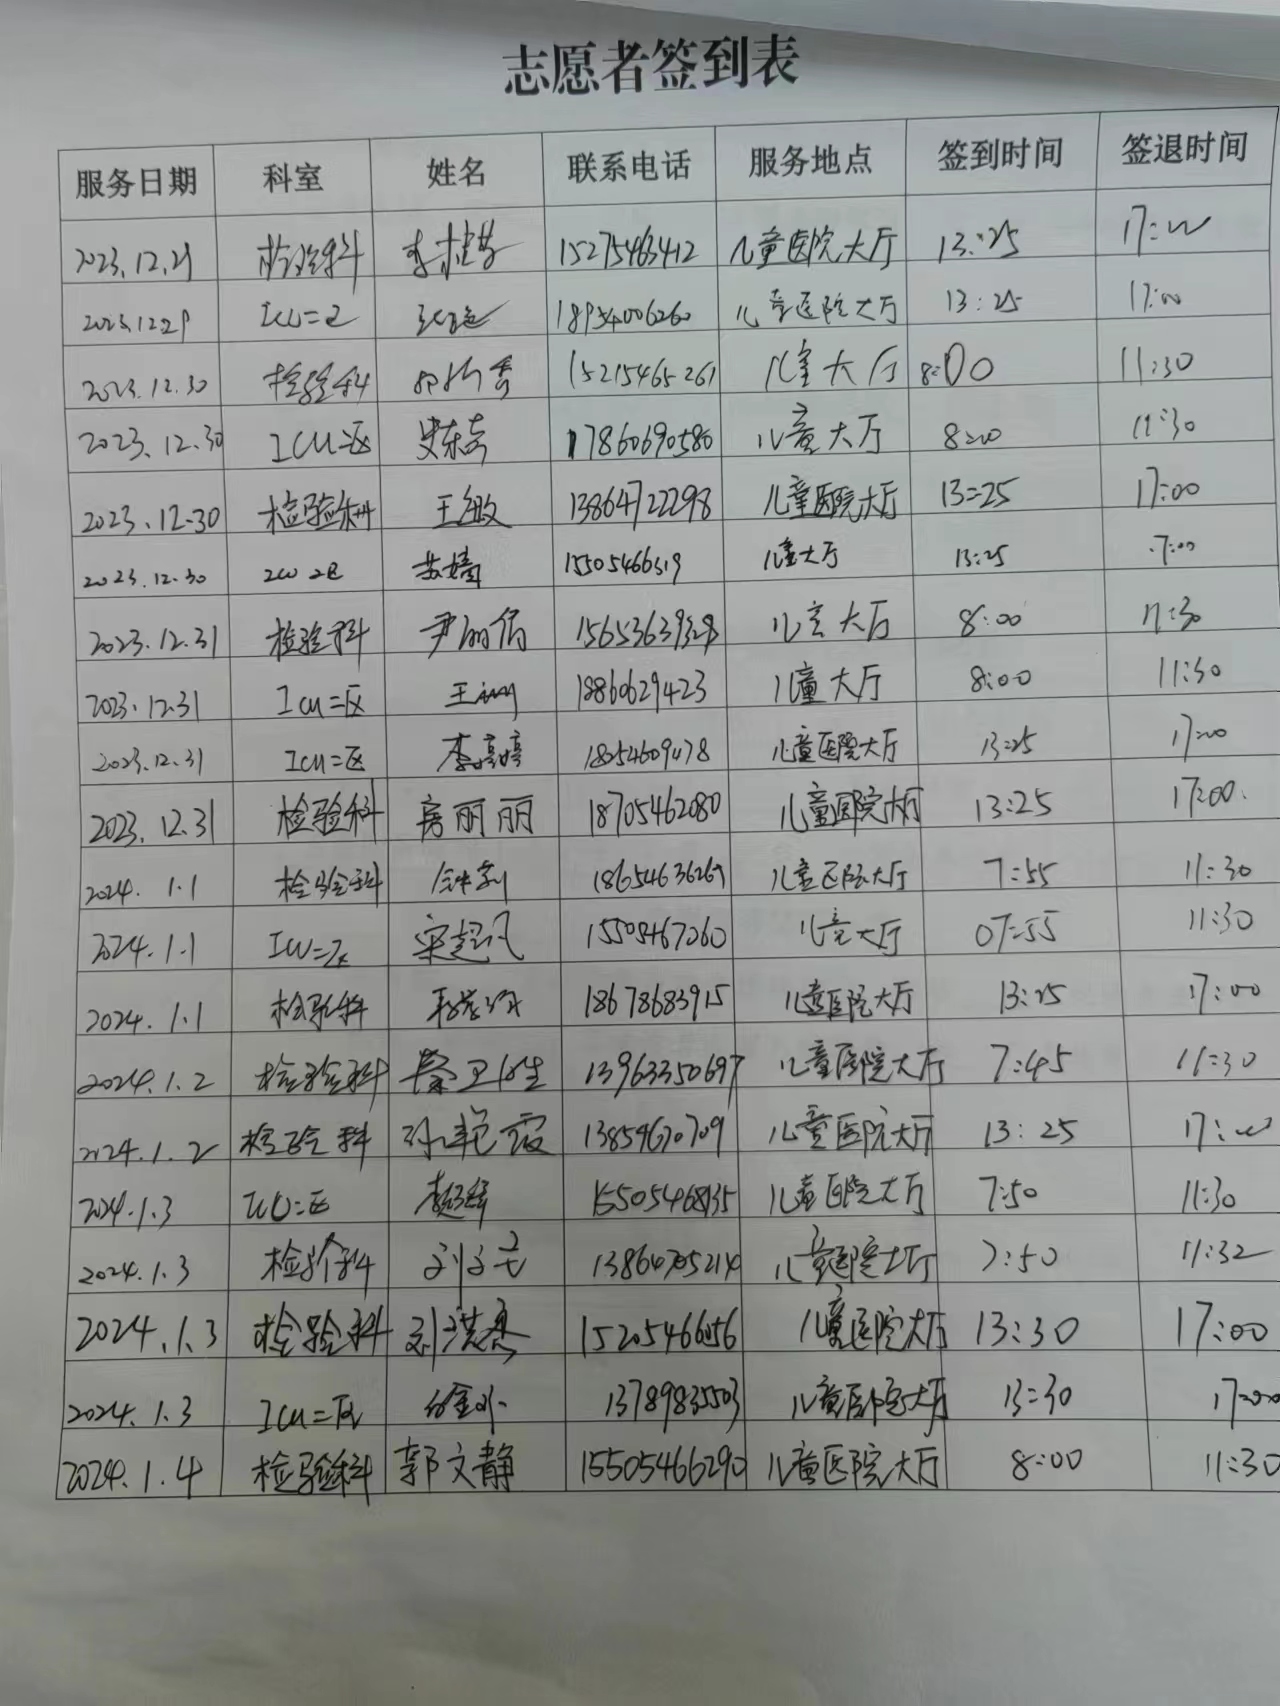 志愿者签到表
服务日期 科室 姓名 联系电话 服务地点 签到时间 签退时间
2023.12.29 检验科 15275463412 儿童医院大厅 13:25 17:00
2023.12.29 ICU二区 18954006260 儿童医院大厅 13:25 17:00
2023.12.30 检验科 15215465261 儿童大厅 8:00 11:30
2023.12.30 ICU二区 17860690580 儿童大厅 8:00 11:30
2023.12.30 检验科 王敏 13864722298 儿童医院大厅 13:25 17:00
2023.12.30 ICU二区 苏婧 15505466319 儿童大厅 13:25 17:00
2023.12.31 检验科 尹丽倩 儿童大厅 8:00 11:30
2023.12.31 ICU二区 18860629423 儿童大厅 8:00 11:30
2023.12.31 ICU二区 李婷婷 18254609478 儿童医院大厅 13:25 17:00
2023.12.31 检验科 房丽丽 18705462080 儿童医院大厅 13:25 17:00
2024.1.1 检验科 18654636269 儿童医院大厅 7:55 11:30
2024.1.1 ICU二区 15505467060 儿童大厅 07:55 11:30
2024.1.1 检验科 18678683915 儿童医院大厅 13:25 17:00
2024.1.2 检验科 13963350697 儿童医院大厅 7:45 11:30
2024.1.2 检验科 孙艳霞 13854670709 儿童医院大厅 13:25 17:00
2024.1.3 ICU二区 15505468135 儿童医院大厅 7:50 11:30
2024.1.3 检验科 13864705214 儿童医院大厅 7:50 11:32
2024.1.3 检验科 刘洪杰 儿童医院大厅 13:30 17:00
2024.1.3 ICU二区 13789835503 儿童医院大厅 13:30 17:00
2024.1.4 检验科 郭文静 15505466290 儿童医院大厅 8:00 11:30